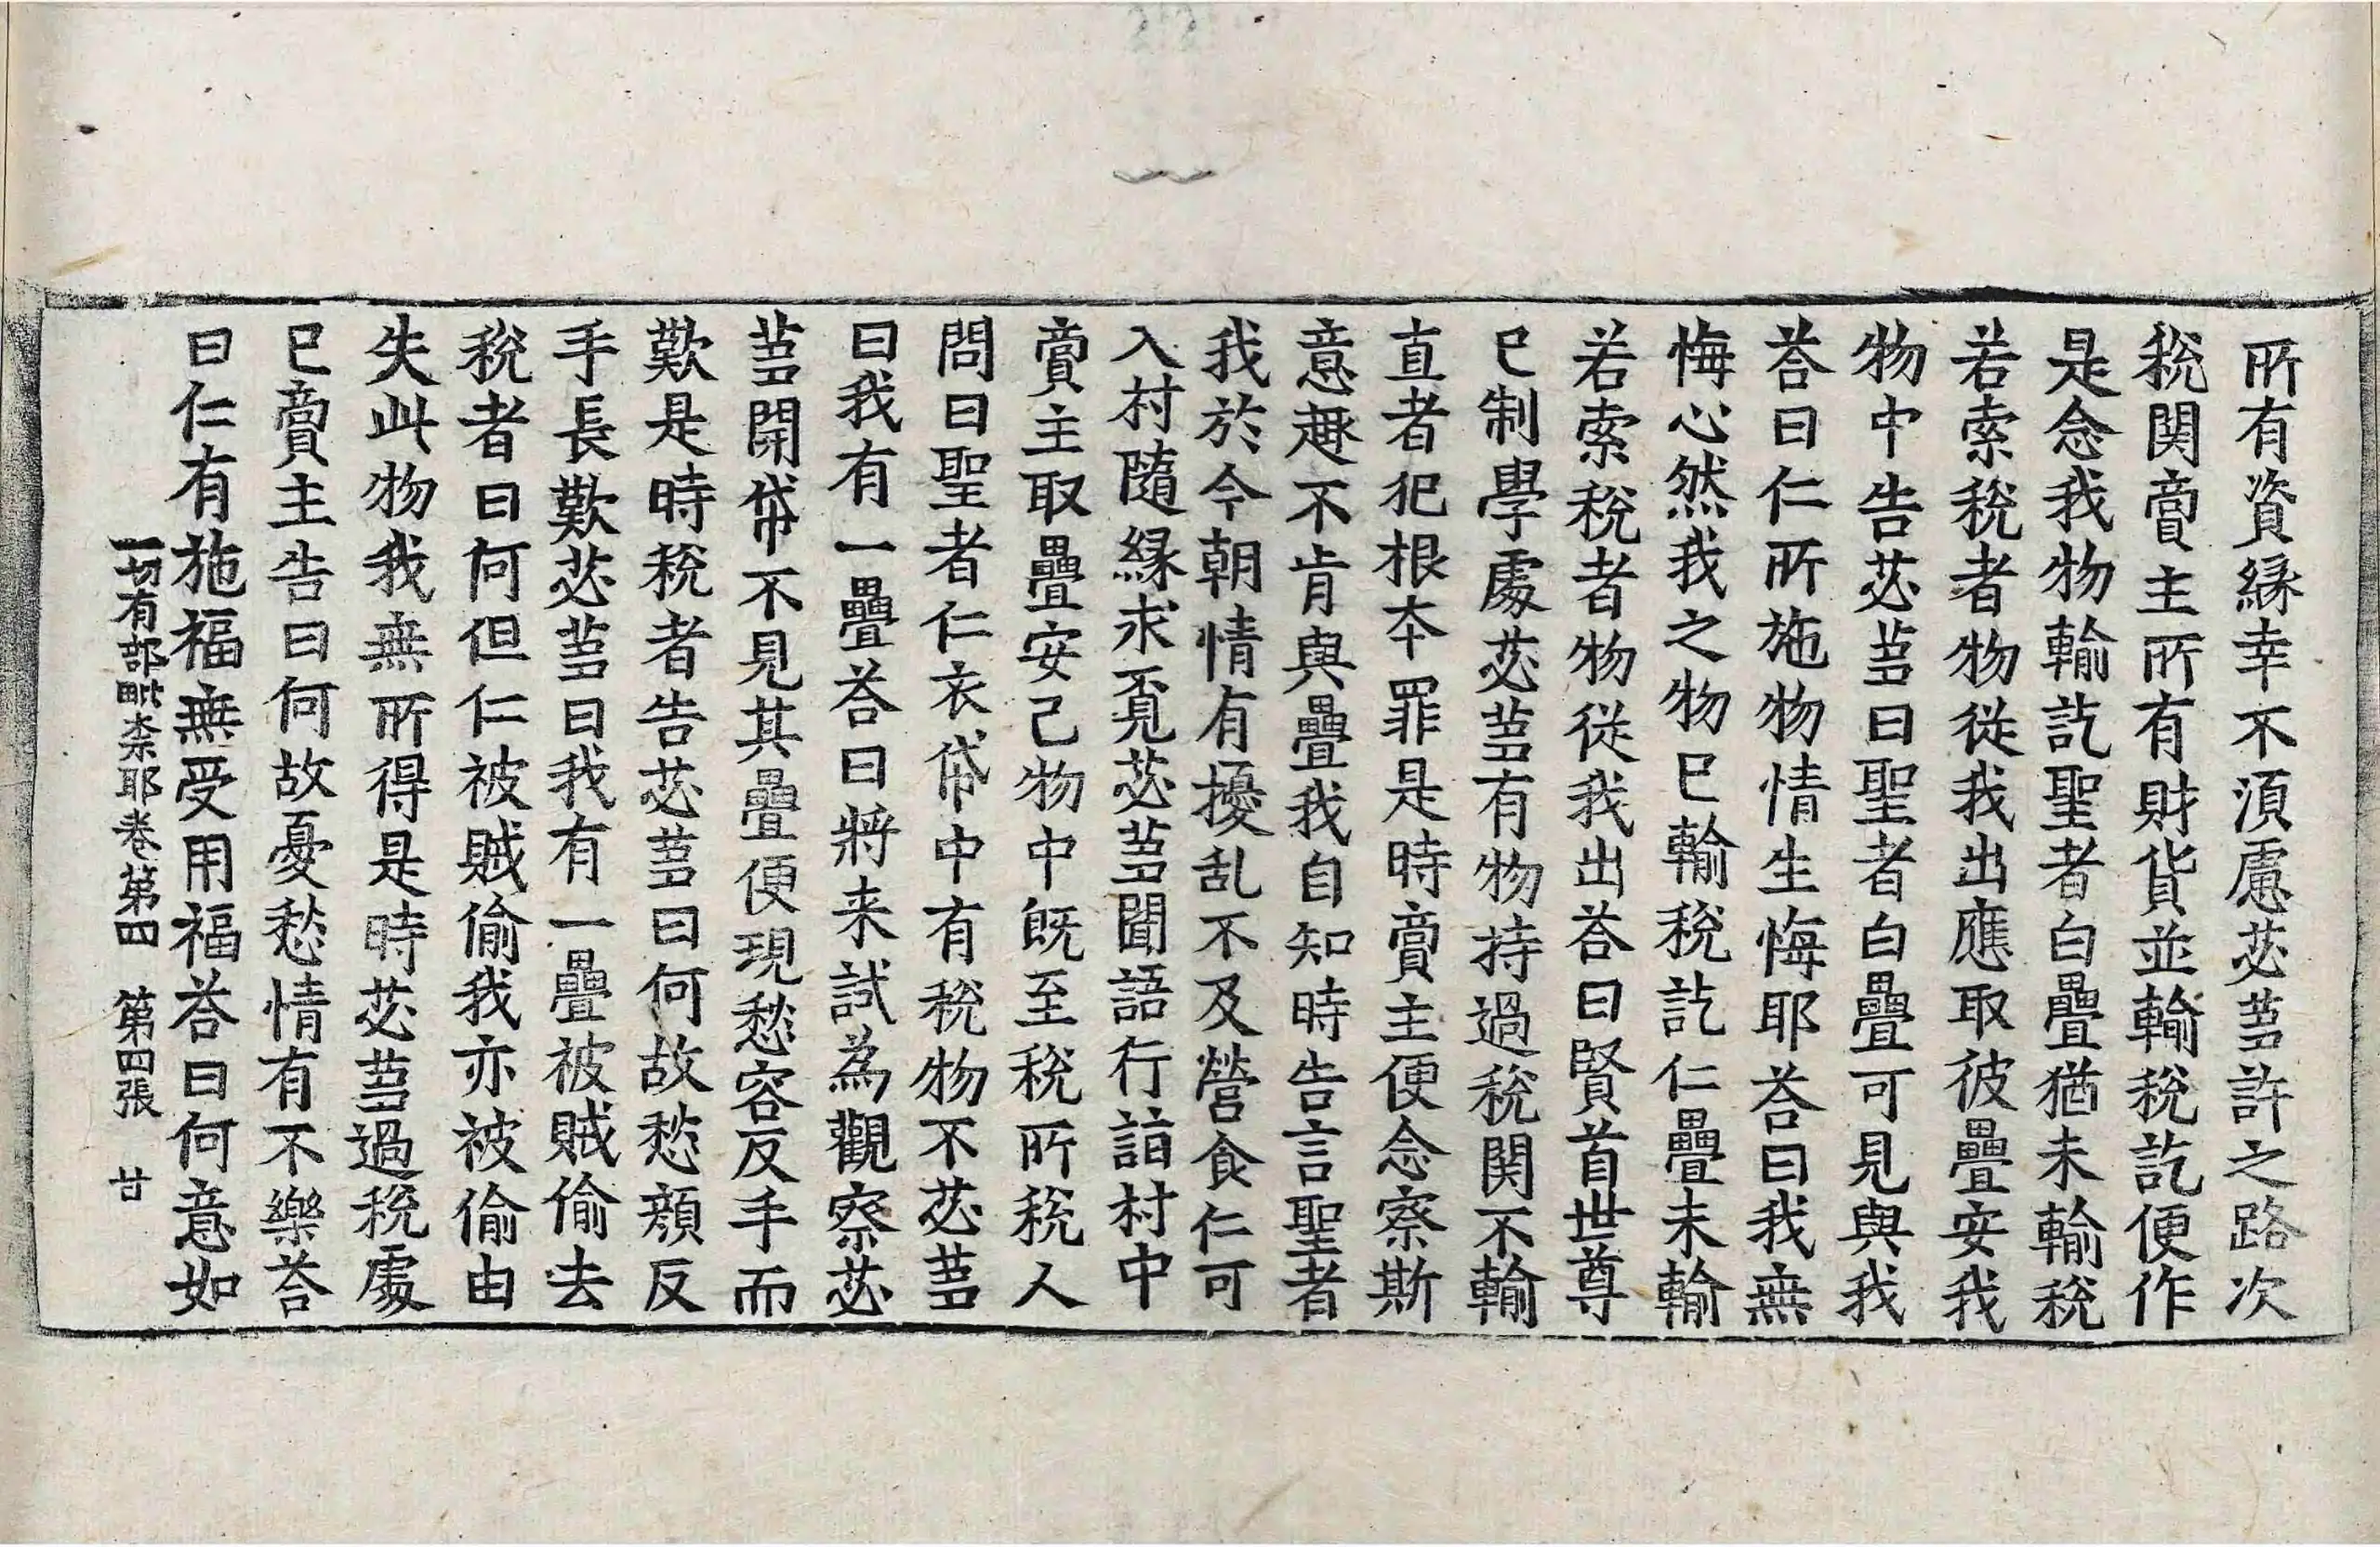 所有資緣幸不湏慮苾蒭許之路次
稅関賣主所有財貨並輸稅訖便作
是念我物輸訖聖者白疊猶未輸稅
若索稅者物從我出應取彼疊安我
物中告苾蒭曰聖者白疊可見與我
荅曰仁所施物情生悔耶荅曰我無
悔心然我之物已輸稅訖仁疊未輸
若索稅者物從我出荅曰賢首世尊
已制學處苾蒭有物持過稅関不輸
直者犯根本罪是時賣主便念察斯
意趣不肯與疊我自知時告言聖者
我於今朝情有擾乱不及營食仁可
入村隨緣求覓苾蒭聞語行詣村中
賣主取疊安己物中既至稅所稅人
問曰聖者仁衣帒中有稅物不苾蒭
曰我有一疊荅曰將来試為觀察苾
蒭開帒不見其疊便現愁容反手而
歎是時稅者告苾蒭曰何故愁顏反
手長歎苾蒭曰我有一疊被賊偷去
稅者曰何但仁被賊偷我亦被偷由
失此物我無所得是時苾蒭過稅處
已賣主告曰何故憂愁情有不樂荅
曰仁有施福無受用福荅曰何意如
一切有部毗柰耶卷第四 第四張 甘